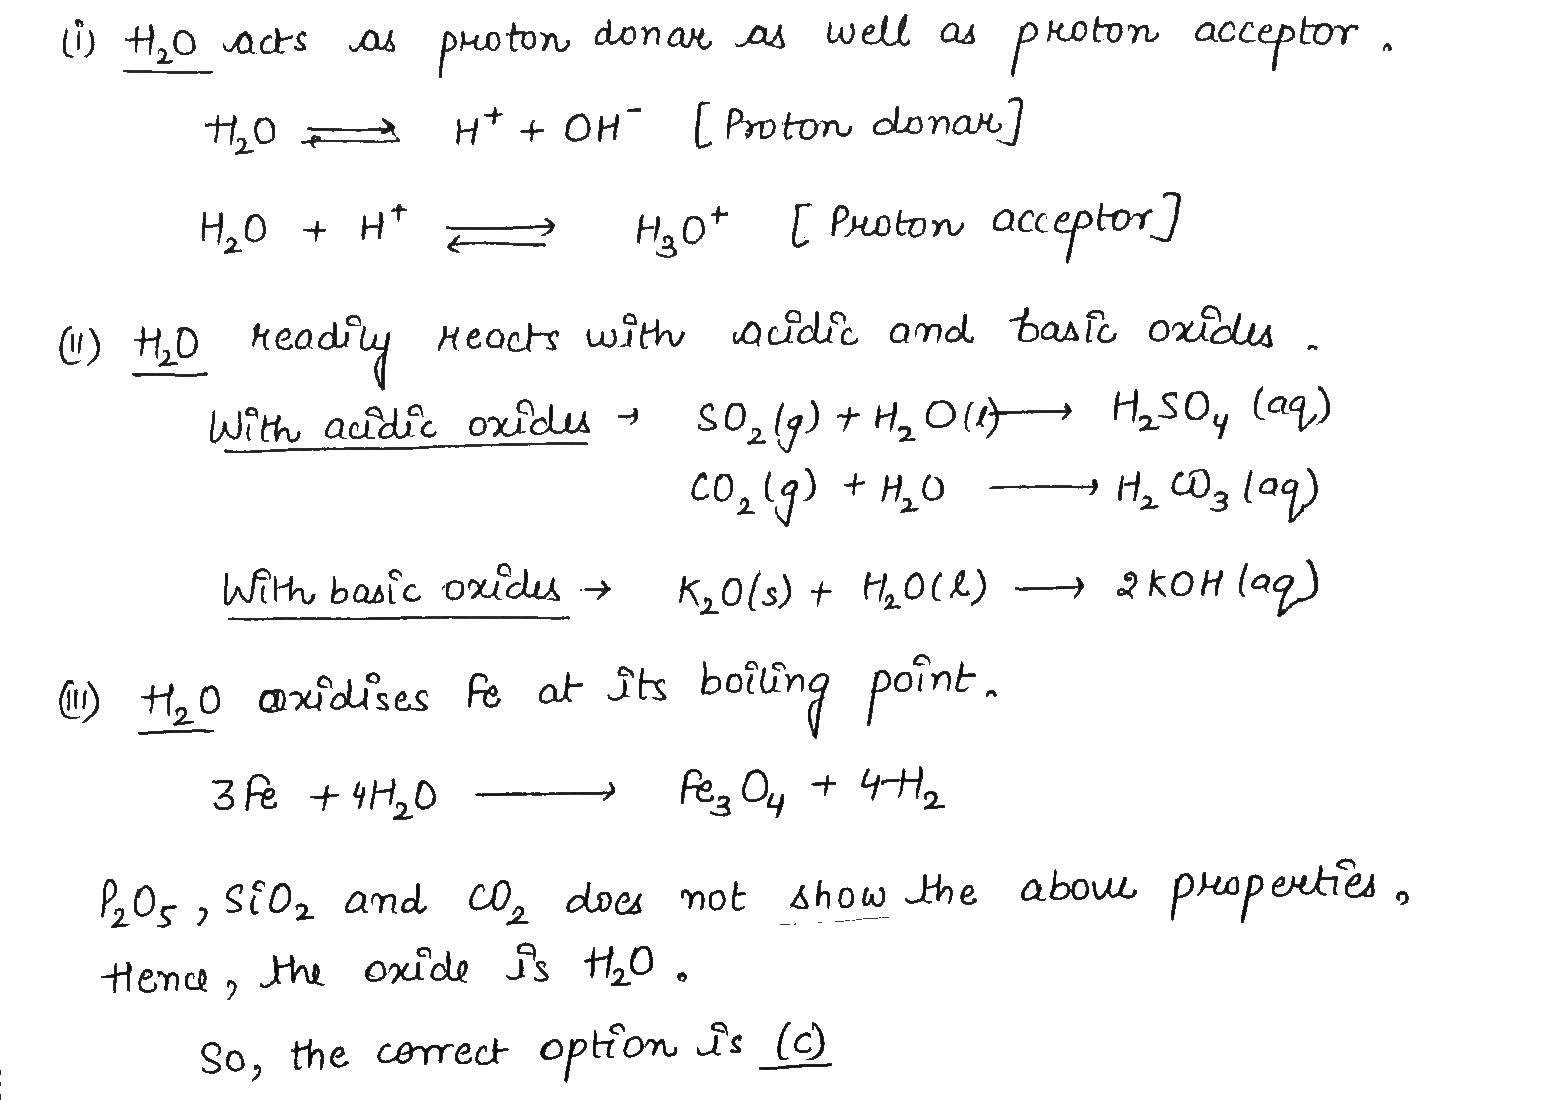 (i) H₂O acts as proton donar as well as proton acceptor.
H₂O ⇌ H⁺ + OH⁻ [Proton donar]
H₂O + H⁺ ⇌ H₃O⁺ [Proton acceptor]
(ii) H₂O readily reacts with acidic and basic oxides.
With acidic oxides → SO₂(g) + H₂O(l) → H₂SO₄ (aq)
CO₂(g) + H₂O → H₂CO₃ (aq)
With basic oxides → K₂O(s) + H₂O(l) → 2KOH (aq)
(iii) H₂O oxidises Fe at its boiling point.
3Fe + 4H₂O → Fe₃O₄ + 4H₂
P₂O₅, SiO₂ and CO₂ does not show the above properties.
Hence, the oxide is H₂O.
So, the correct option is (c)